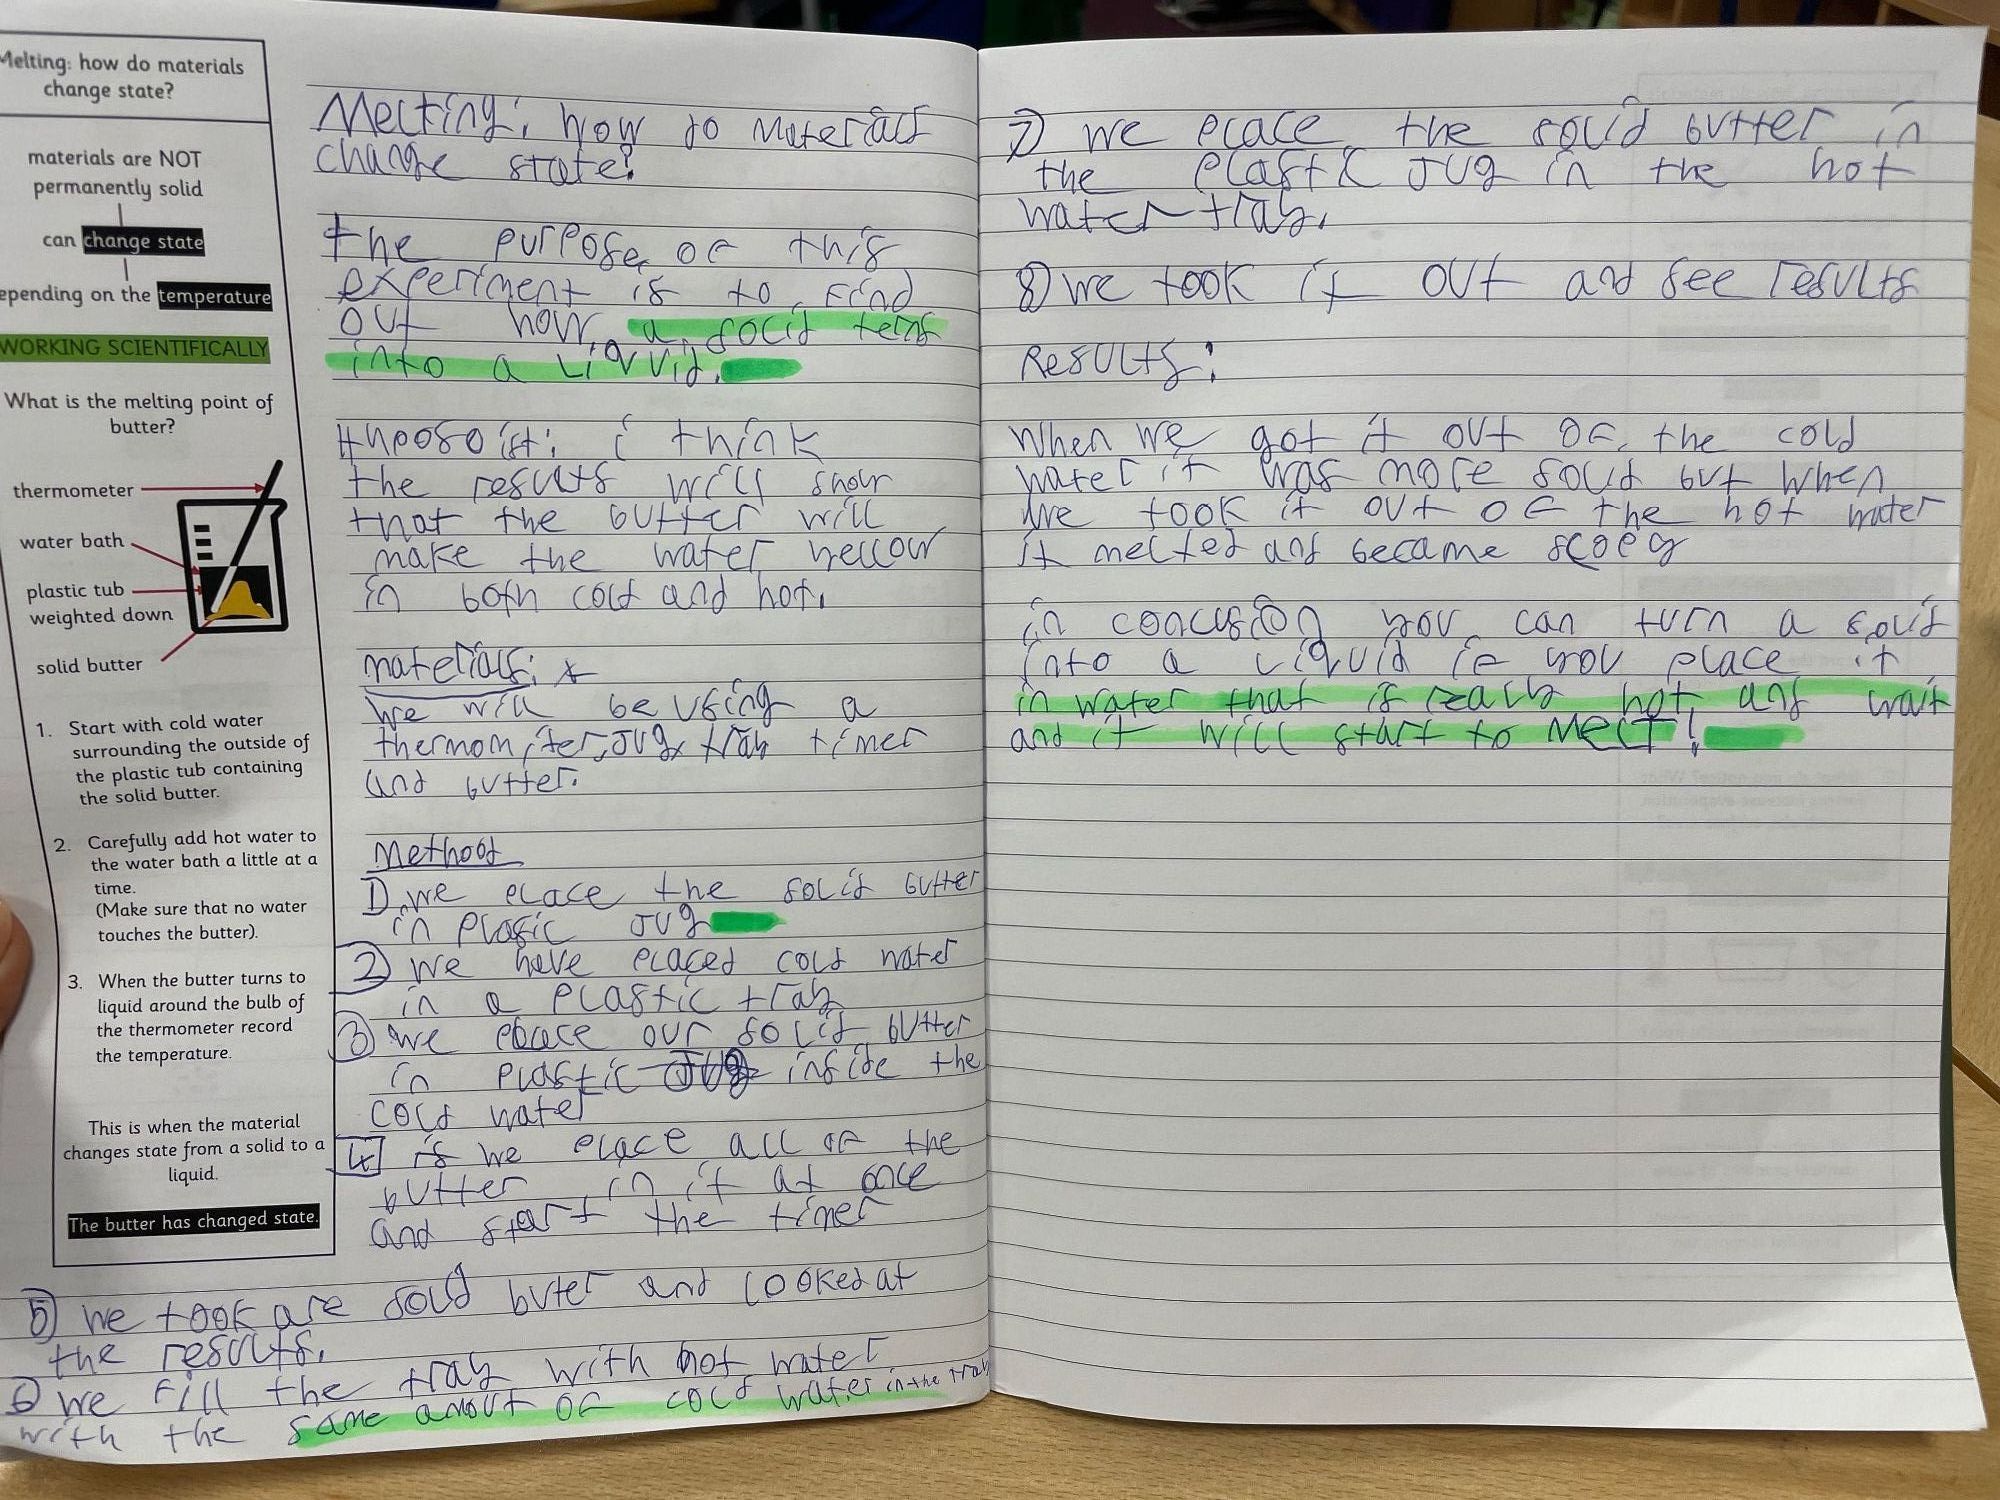 Melting: how do materials
change state?
materials are NOT
permanently solid
can change state
epending on the temperature
WORKING SCIENTIFICALLY
What is the melting point of
butter?
thermometer
water bath
plastic tub
weighted down
solid butter
1. Start with cold water
surrounding the outside of
the plastic tub containing
the solid butter.
2. Carefully add hot water to
the water bath a little at a
time.
(Make sure that no water
touches the butter).
3. When the butter turns to
liquid around the bulb of
the thermometer record
the temperature.
This is when the material
changes state from a solid to a
liquid.
The butter has changed state.
Melting: how do materials
change state?
the purpose of this
experiment is to find
out how a solid terns
into a liquid.
Hyposoist: i think
the results will show
that the butter will
make the water yellow
in both cold and hot.
materials:
we will be using a
thermomiter, jug, tray timer
and butter.
Method
1) we place the solid butter
in plasic jug
2) we have placed cold water
in a plastic tray
3) we place our solid butter
in plastic jug inside the
cold water
4 is we place all of the
butter in it at once
and start the timer
5) we took are solid buter and looked at
the results.
6) we fill the tray with hot water
with the same amout of cold water in the tray
7) we place the solid butter in
the plastic jug in the hot
water tray.
8) we took it out and see results
Results:
When we got it out of the cold
water it was more solid but when
we took it out of the hot water
it melted and became slopy
in concusion you can turn a solid
into a liquid if you place it
in water that is realy hot and wait
and it will start to melt!